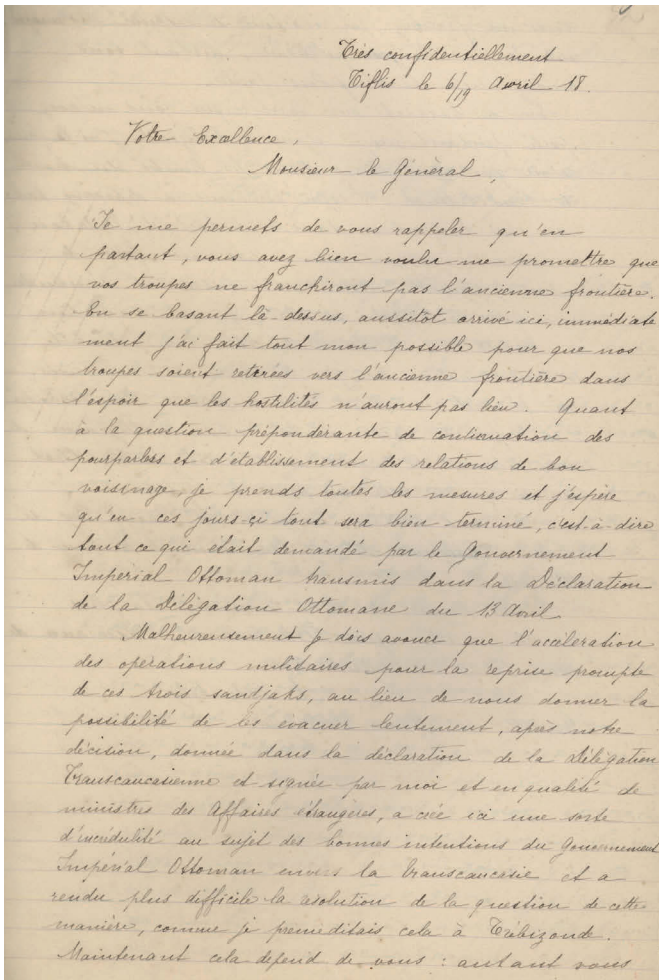 Très confidentiellement
Tiflis le 6/19 Avril 18.
Votre Excellence,
Monsieur le Général,
Je me permets de vous rappeler qu'en
partant, vous avez bien voulu me promettre que
vos troupes ne franchiront pas l'ancienne frontière.
En se basant là-dessus, aussitot arrivé ici, immédiate
ment j'ai fait tout mon possible pour que nos
troupes soient retirées vers l'ancienne frontière dans
l'espoir que les hostilités n'auront pas lieu. Quant
à la question prépondérante de continuation des
pourparlers et d'établissement des relations de bon
voisinage, je prends toutes les mesures et j'éspère
qu'en ces jours-çi tout sera bien terminé, c'est-à-dire
tout ce qui était demandé par le Gouvernement
Impérial Ottoman transmis dans la Déclaration
de la Délégation Ottomane du 13 Avril
Malheureusement je dois avouer que l'accéleration
des opérations militaires pour la reprise prompte
de ces trois sandjaks, au lieu de nous donner la
possibilité de les évacuer lentement, après notre
décision, donnée dans la déclaration de la Délégation
Transcaucasienne et signée par moi et en qualité de
ministre des Affaires étrangères, a créé ici une sorte
d'incrédulité au sujet des bonnes intentions du Gouvernement
Impérial Ottoman envers la Transcaucasie et a
rendu plus difficile la solution de la question de cette
manière, comme je préméditais cela à Trébizonde.
Maintenant cela dépend de vous : autant vous